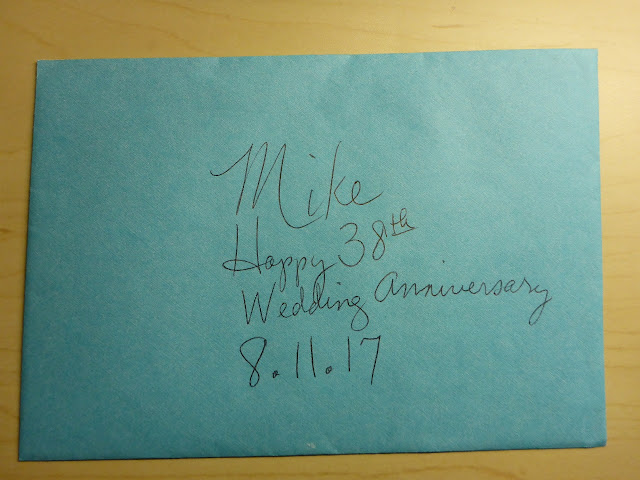 Mike
Happy 38th
Wedding Anniversary
8.11.17